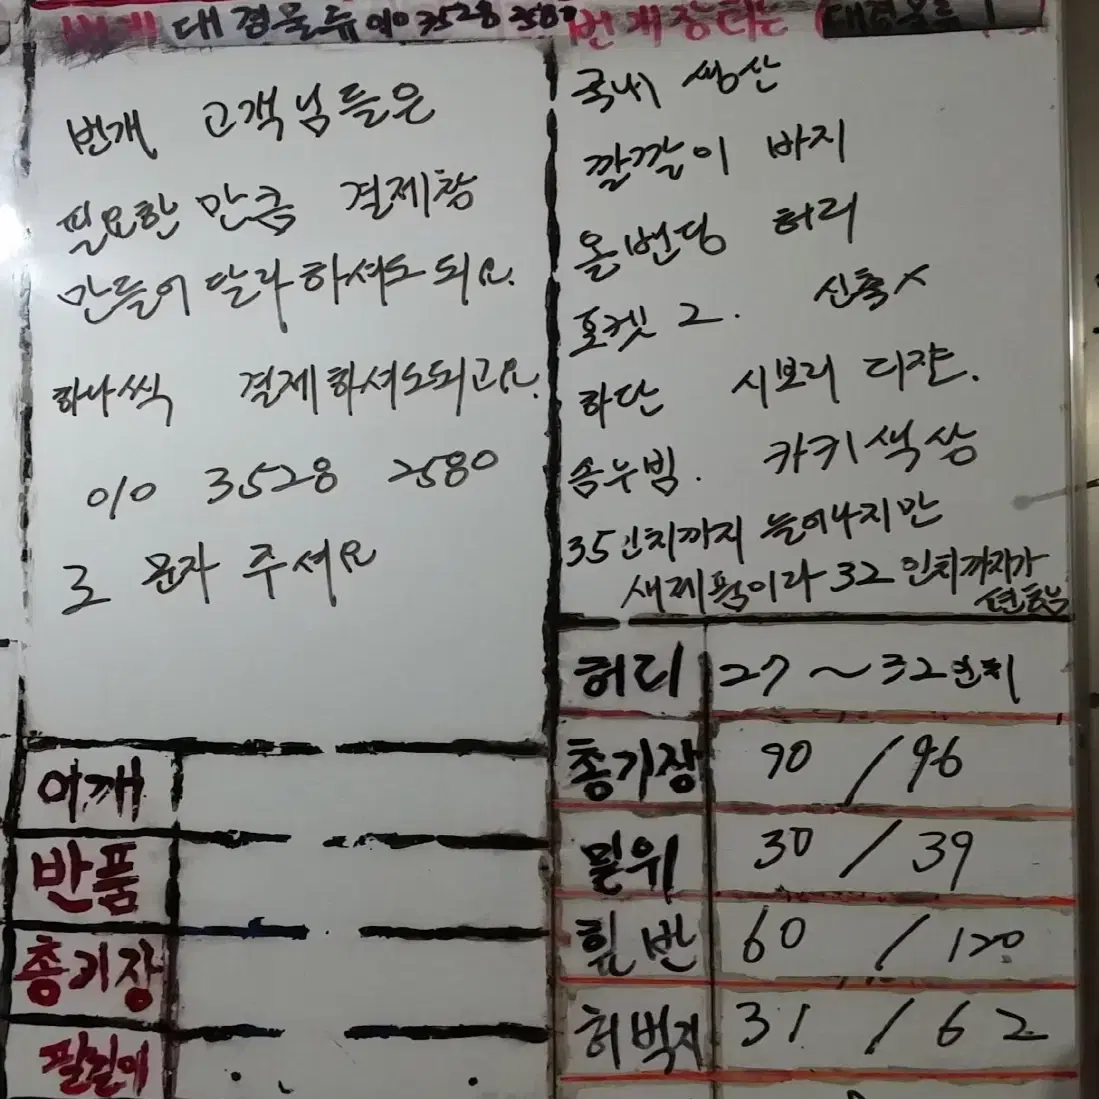 대경물류 010 3528 2580 번개장터는 (대경물류
번개 고객님들은
필요한 만큼 결제창
만들어 달라 하셔도 되요.
하나씩 결제하셔도되고요.
010 3528 2580
로 문자 주세요
국내 생산
깔깔이 바지
올밴딩 허리
포켓 2. 신축X
하단 시보리 디쟌.
솜누빔. 카키색상
35인치까지 늘어나지만
새제품이라 32인치까지가
허리 27~32인치
총기장 90 / 96
밑위 30 / 39
힢반 60 / 120
허벅지 31 / 62
어깨
반품
총기장
팔길이